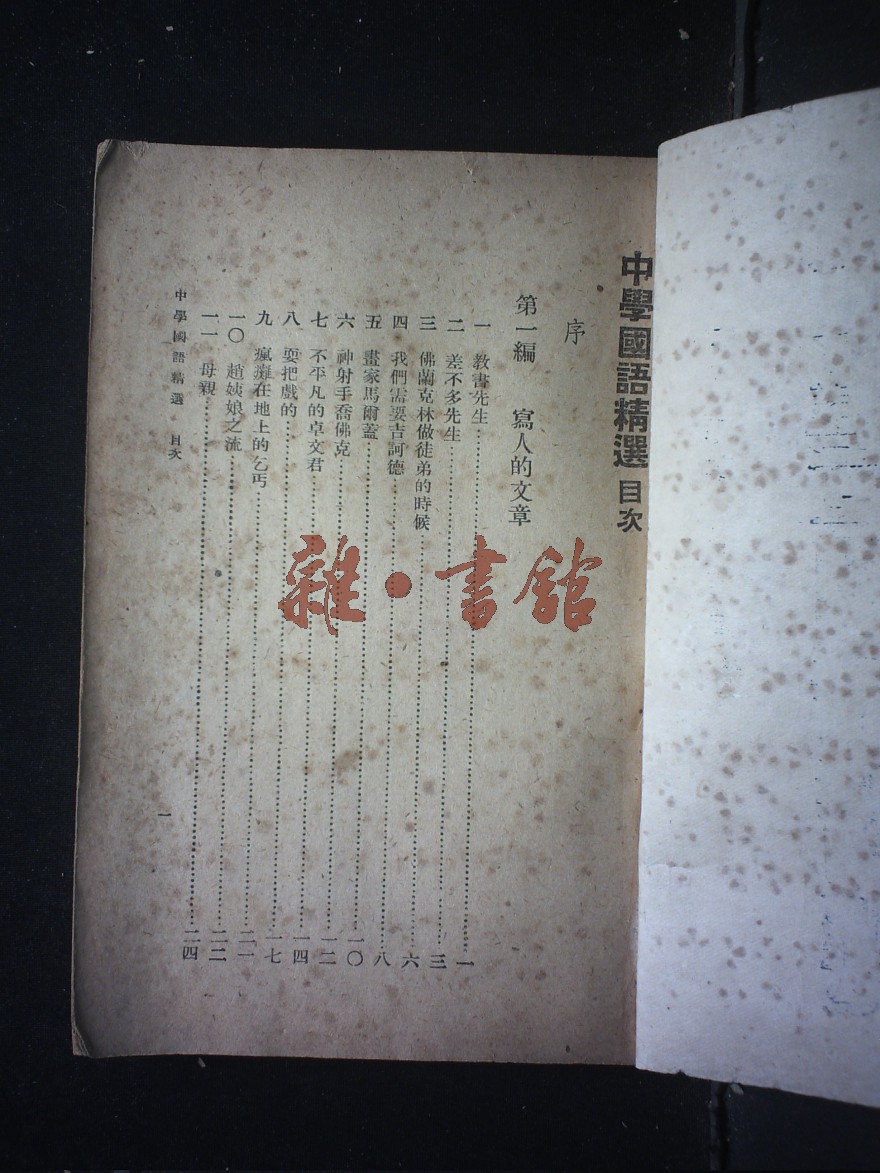 中學國語精選 目次
序
第一編 寫人的文章
一 教書先生……一
二 差不多先生……三
三 佛蘭克林做徒弟的時候……六
四 我們需要吉訶德……八
五 畫家馬爾蓋……一〇
六 神射手喬佛克……一二
七 不平凡的卓文君……一四
八 耍把戲的……一七
九 瘋癱在地上的乞丐……二一
一〇 趙姨娘之流……二二
一一 母親……二四
中學國語精選 目次
一
雜·書館